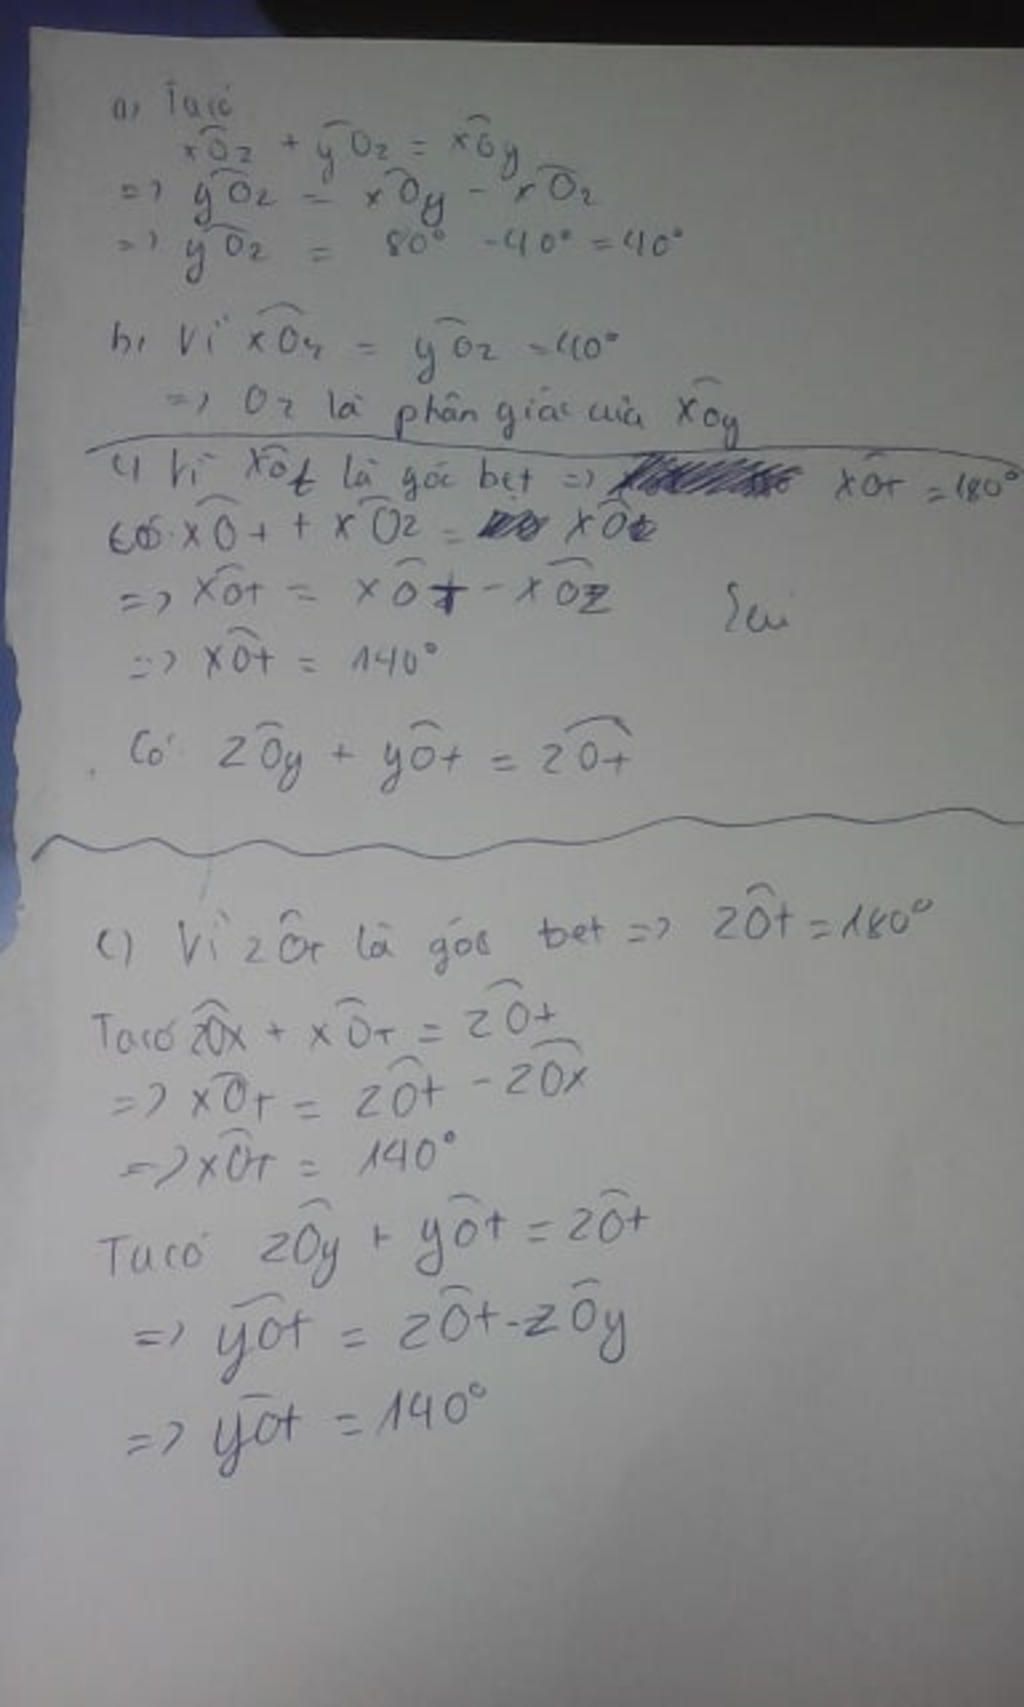 a, Ta có
xOz + yOz = xOy
=> yOz = xOy - xOz
=> yOz = 80° - 40° = 40°
b, Vì xOz = yOz = 40°
=> Oz là phân giác của xOy
c) Vì xOt là góc bet => xOt = 180°
có xOt + xOz = xOt
=> xOt = xOt - xOz
Sai
=> xOt = 140°
Có zOy + yOt = zOt
c) Vì zOt là góc bet => zOt = 180°
Ta có zOx + xOt = zOt
=> xOt = zOt - zOx
=> xOt = 140°
Ta có zOy + yOt = zOt
=> yOt = zOt - zOy
=> yOt = 140°